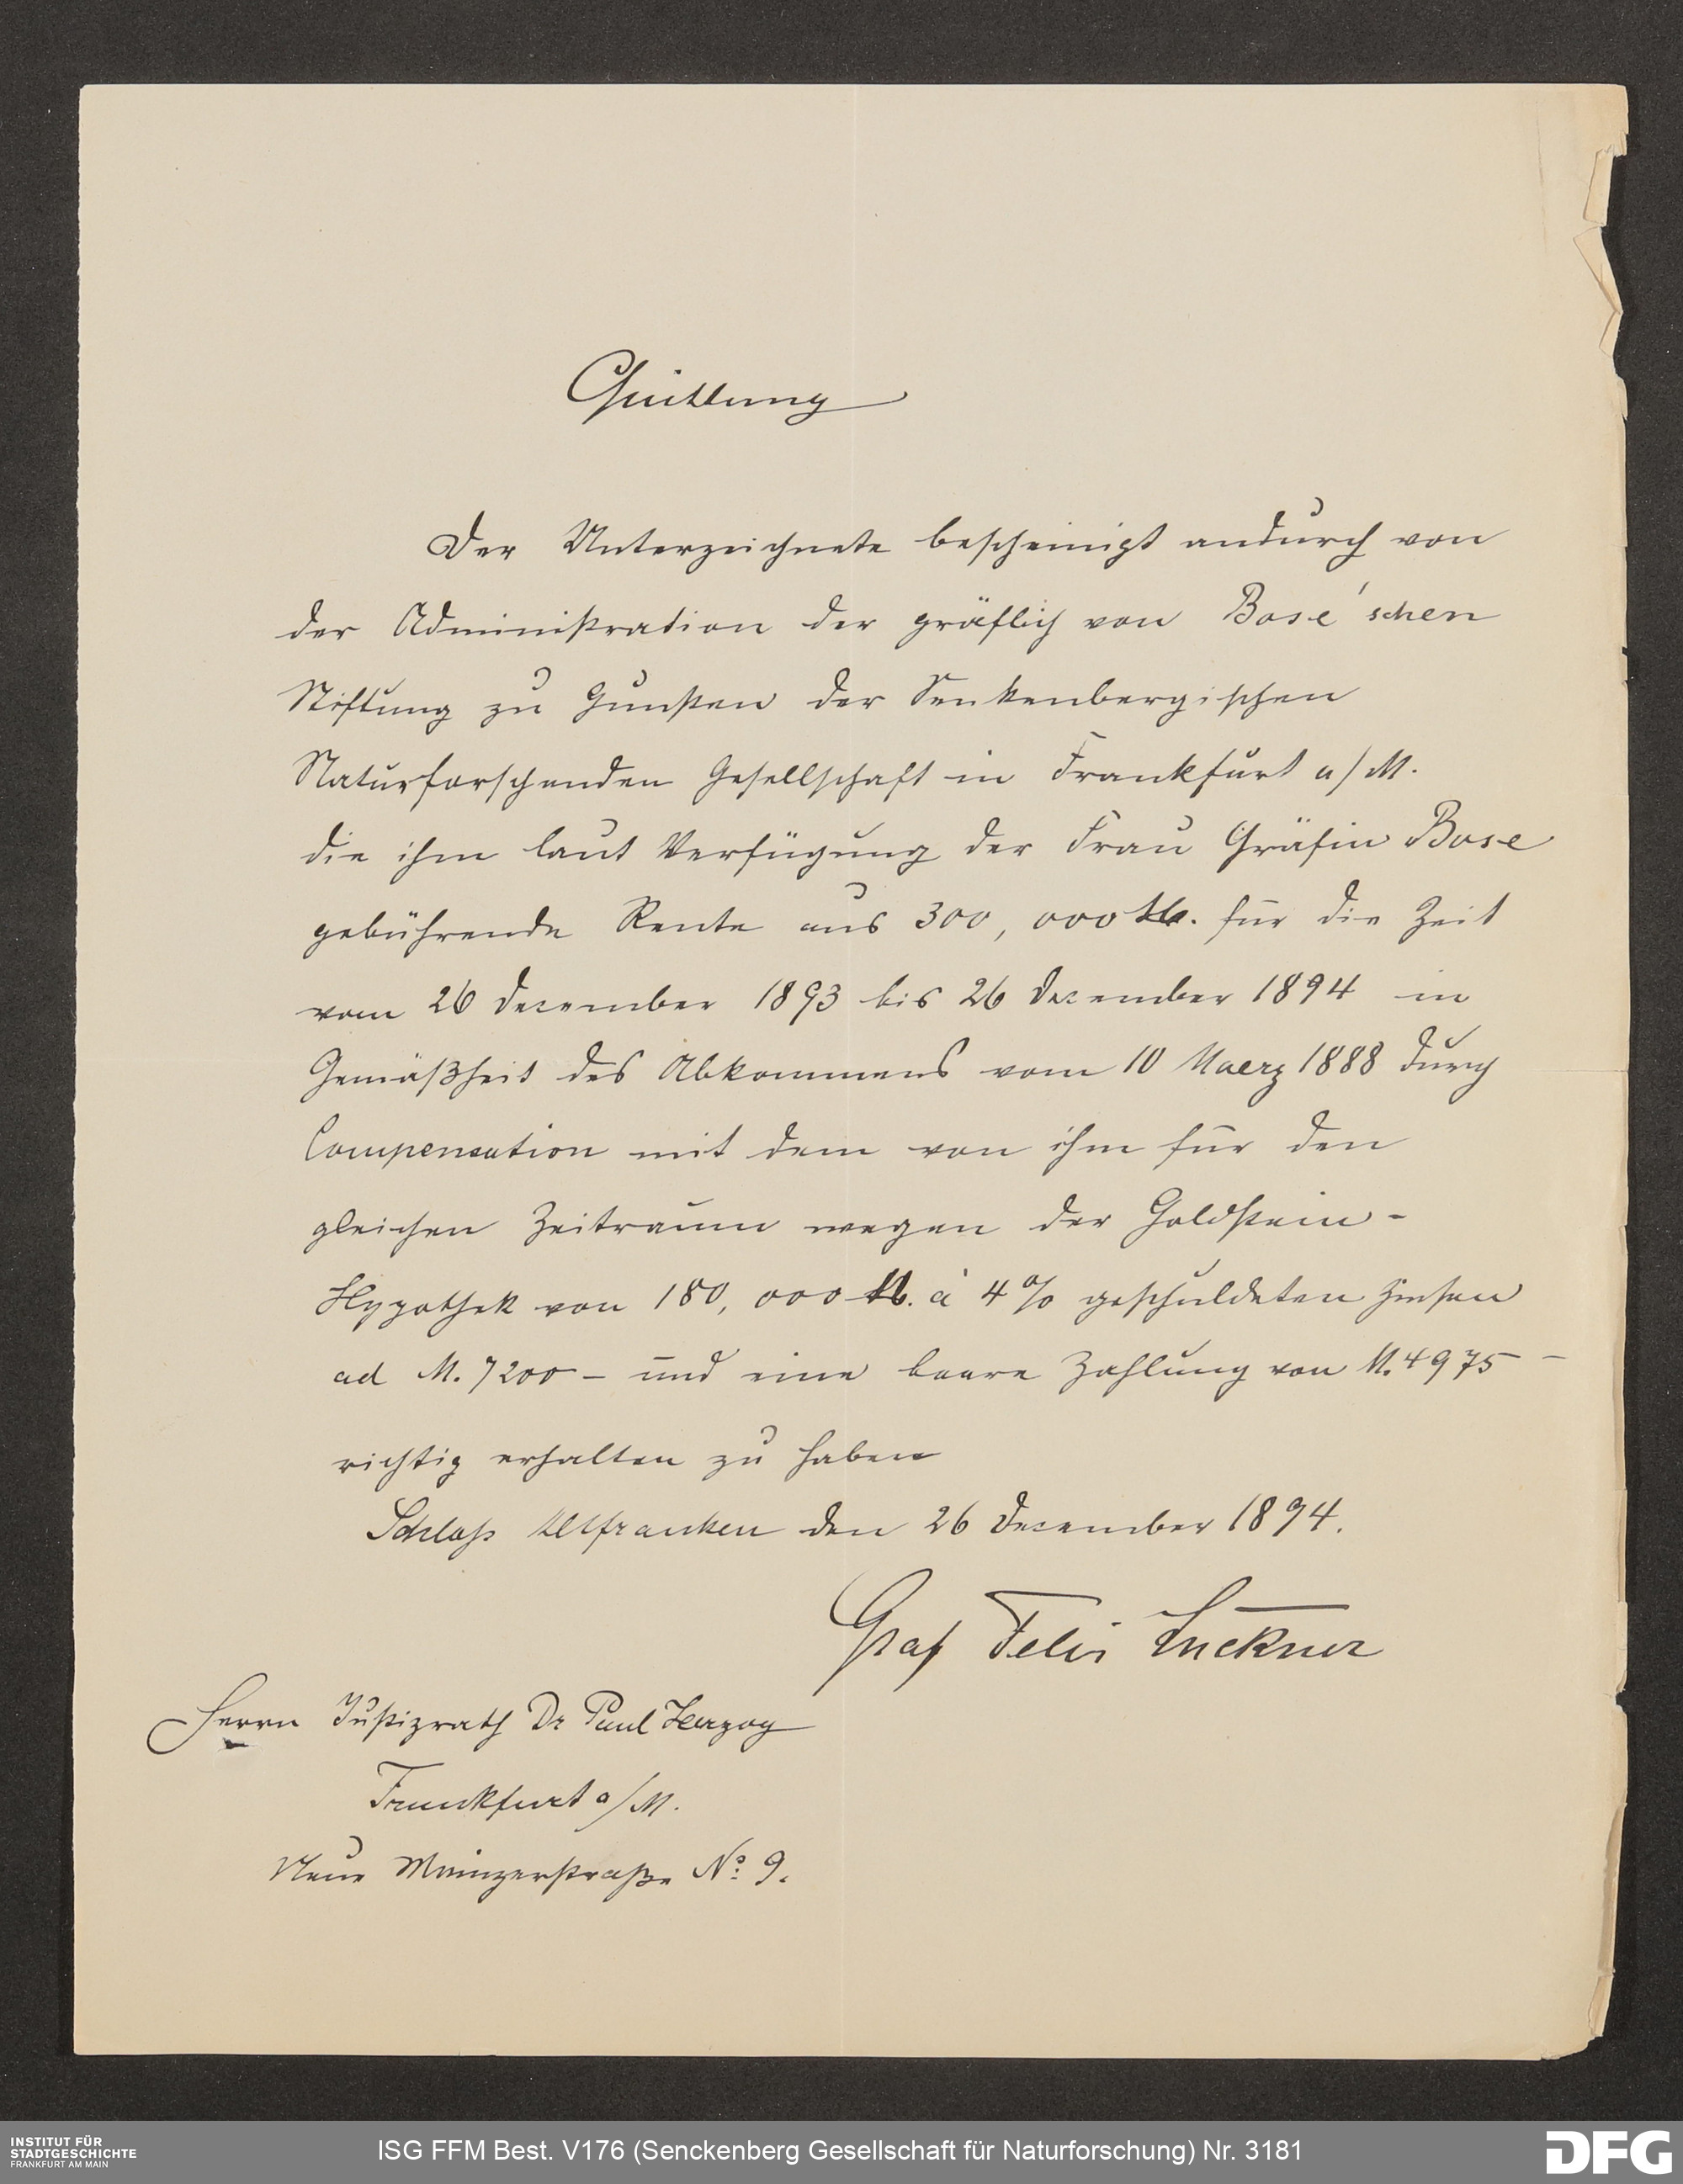 Quittung
Der Unterzeichnete bescheinigt andurch von
der Administration der gräflich von Bose'schen
Stiftung zu Gunsten der Senkenbergischen
Naturforschenden Gesellschaft in Frankfurt a/M.
die ihm laut Verfügung der Frau Gräfin Bose
gebührende Rente aus 300,000 M. für die Zeit
vom 26 Dezember 1893 bis 26 Dezember 1894 in
Gemäßheit des Abkommens vom 10 Maerz 1888 durch
Compensation mit dem von ihm für den
gleichen Zeitraum wegen der Goldstein-
Hypothek von 180,000 M. à 4% geschuldeten Zinsen
ad M. 7200 – und eine baare Zahlung von M. 4975 –
richtig erhalten zu haben
Schloß Altfranken den 26 Dezember 1894.
Graf Felix Luckner
Herrn Justizrath Dr Paul Herzog
Frankfurt a/M.
Neue Mainzerstraße No: 9.
INSTITUT FÜR
STADTGESCHICHTE
FRANKFURT AM MAIN
ISG FFM Best. V176 (Senckenberg Gesellschaft für Naturforschung) Nr. 3181
DFG